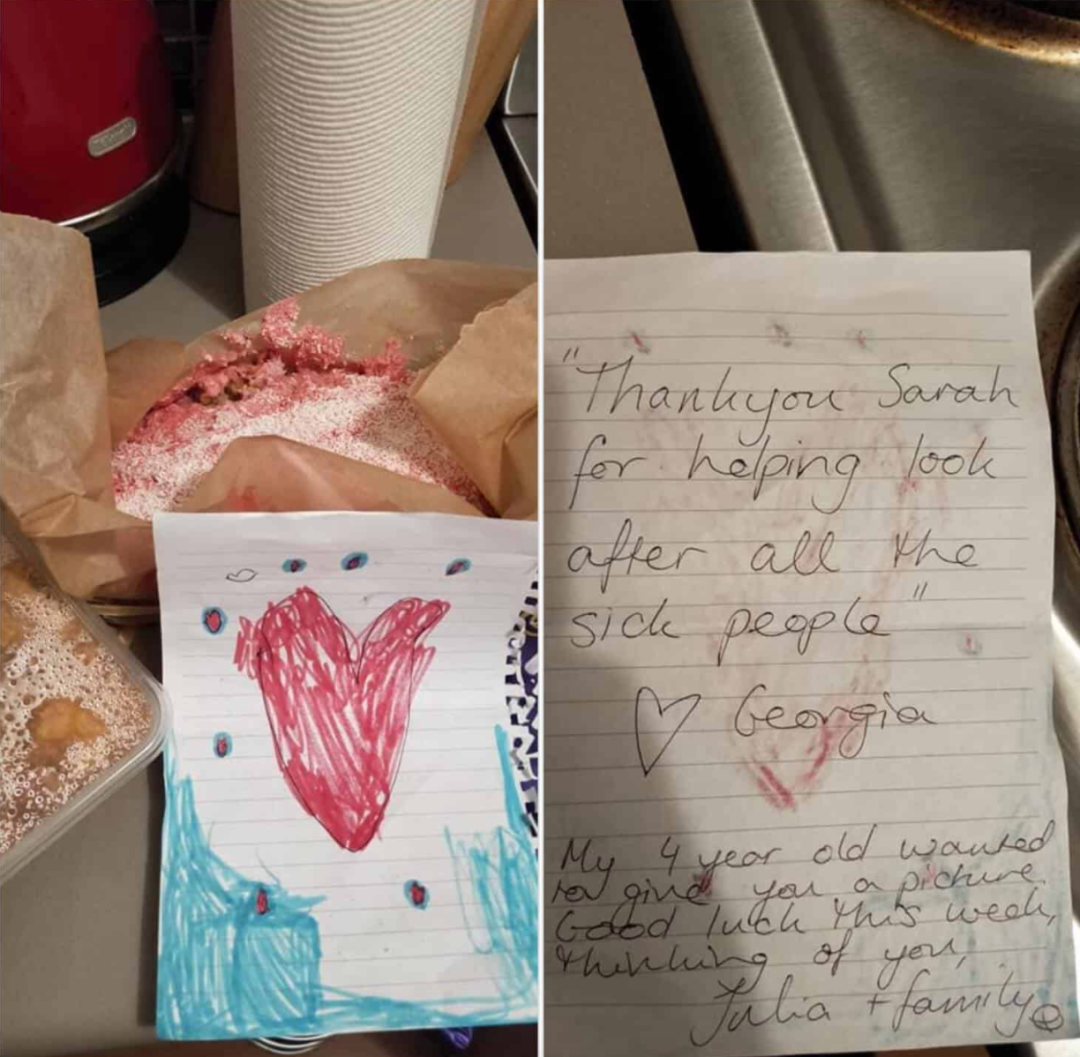 "Thankyou Sarah
for helping look
after all the
sick people"
Georgia
My 4 year old wanted
to give you a picture.
Good luck this week,
thinking of you,
Julia + family